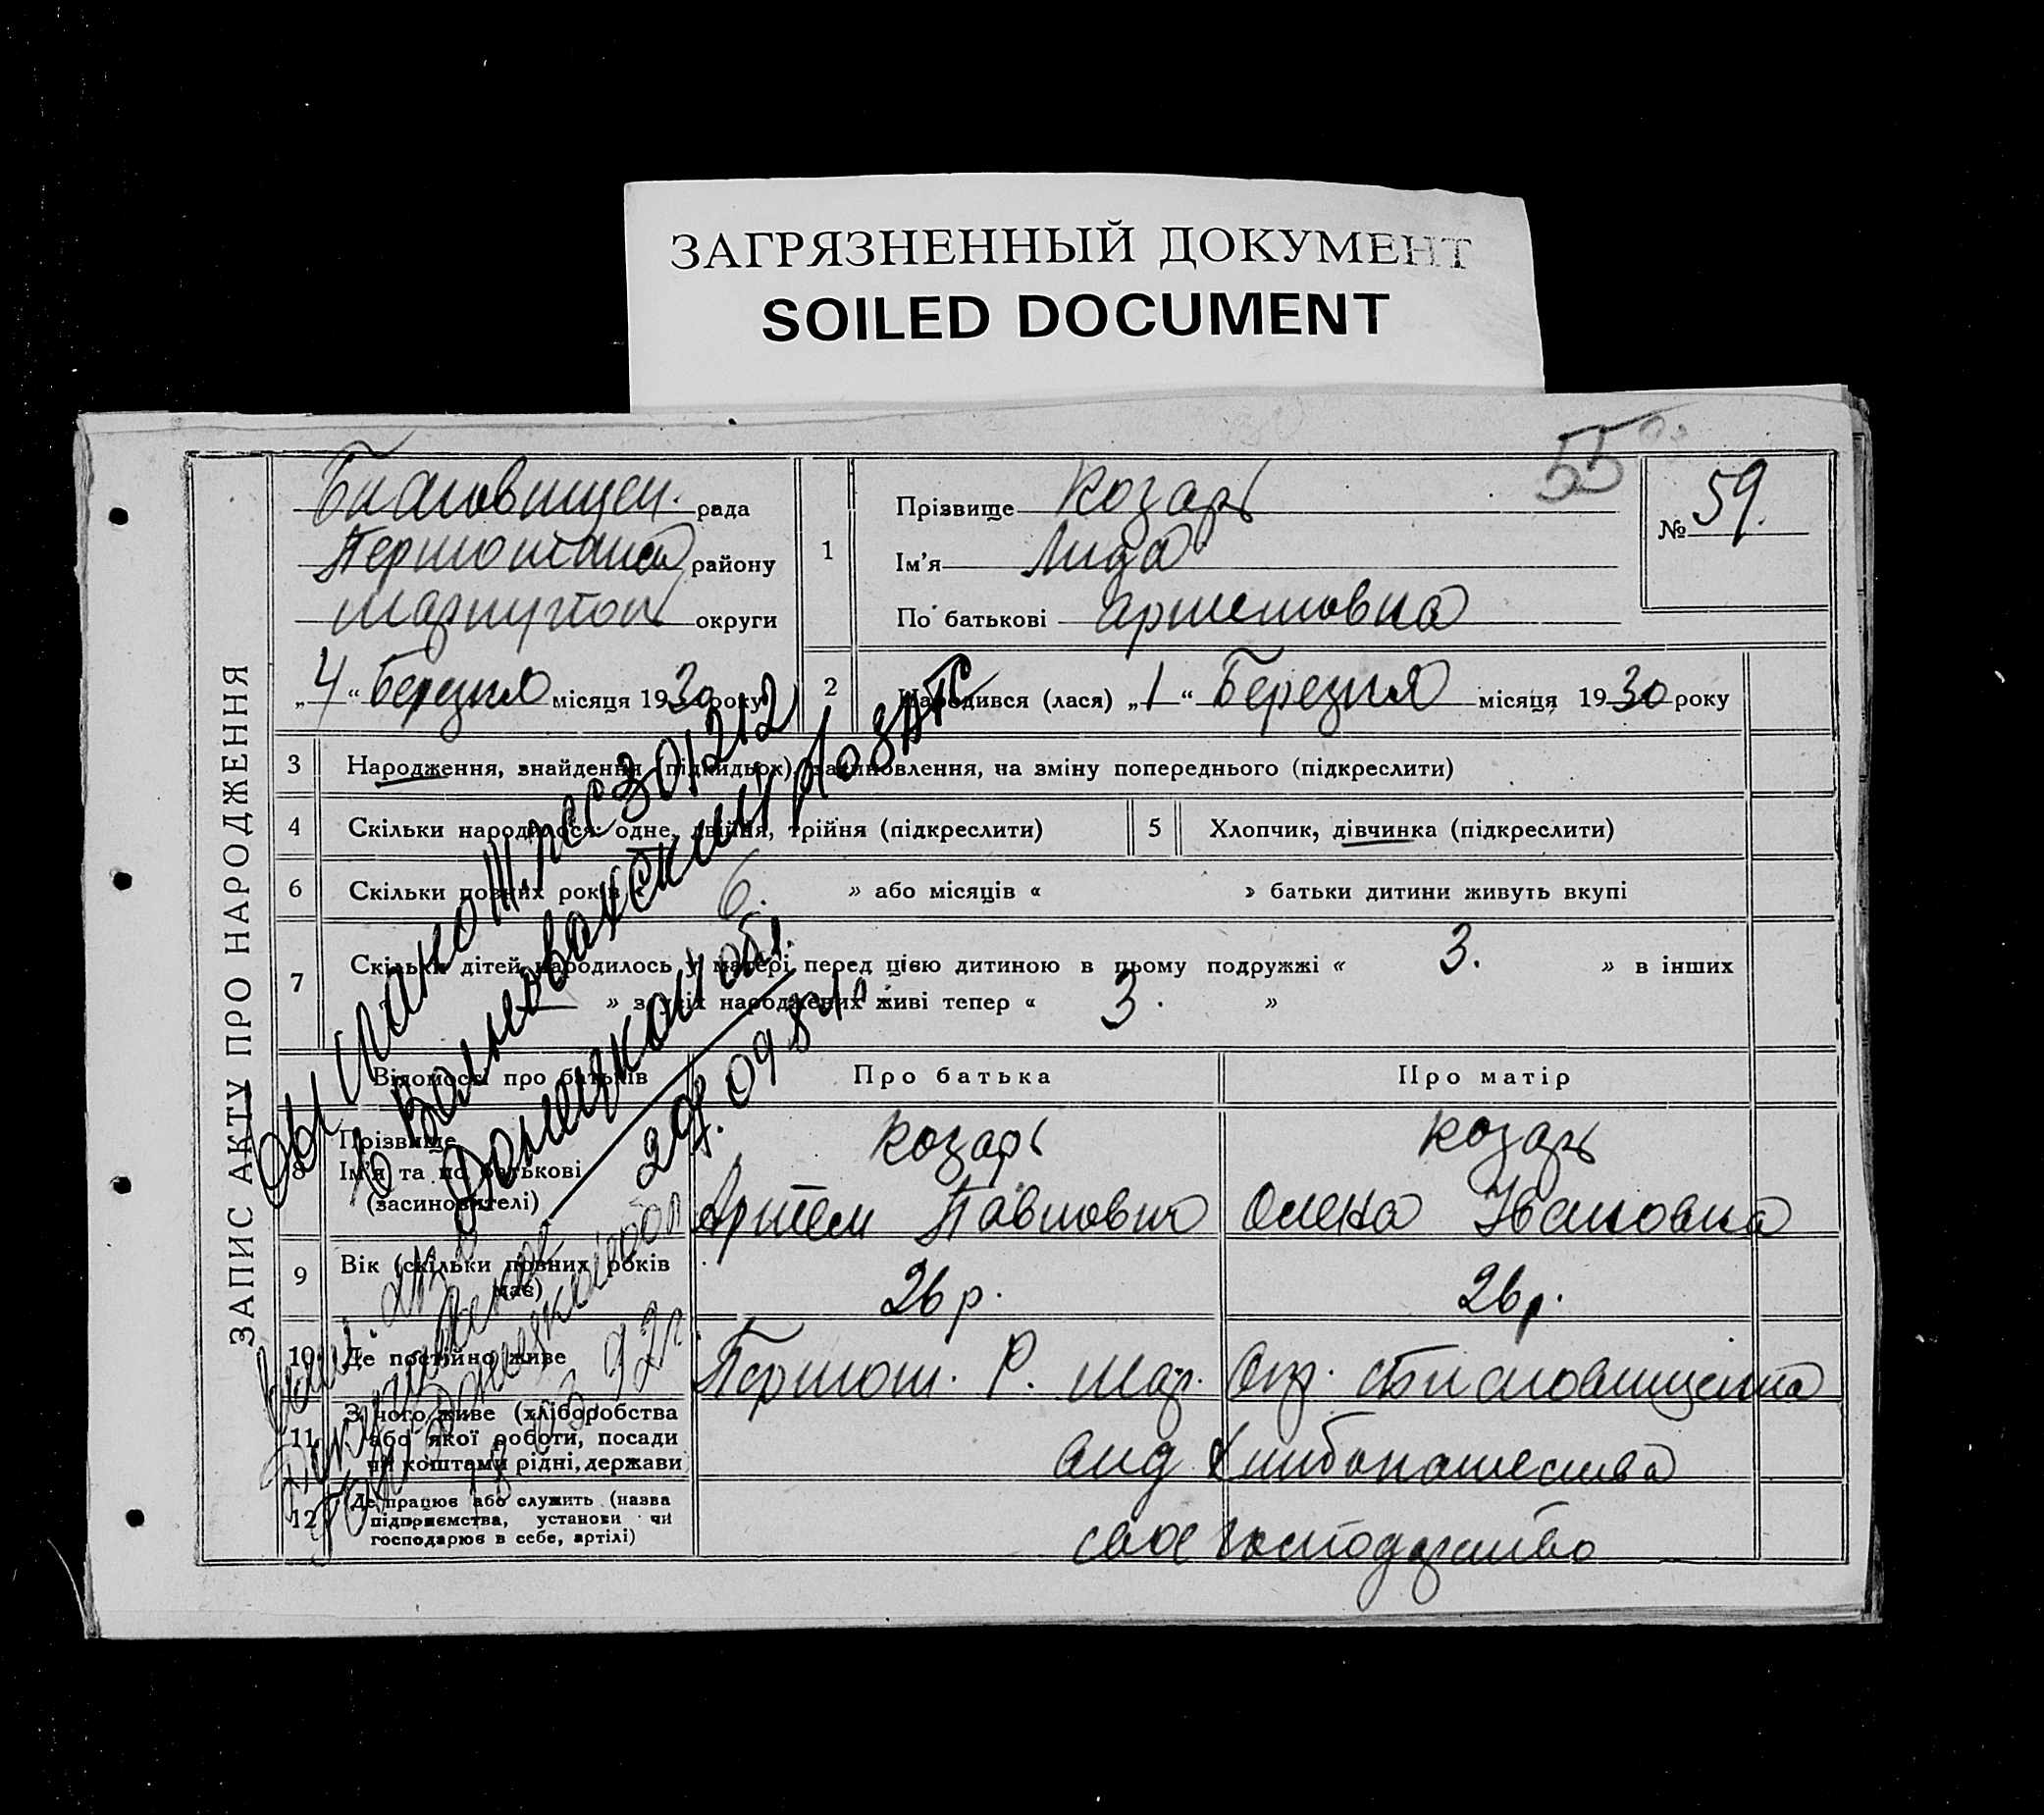 ЗАГРЯЗНЕННЫЙ ДОКУМЕНТ
SOILED DOCUMENT
55
ЗАПИС АКТУ ПРО НАРОДЖЕННЯ
Благовищен. рада
району
округи
„4“ Березня місяця 1930 року
1
Прізвище Козарь
Ім'я Лида
По батькові Артемовна
№ 59.
2 Народився (лася) „1“ Березня місяця 1930 року
3 Народження, знайдення (підкидьок), засиновлення, на зміну попереднього (підкреслити)
4 Скільки народилося: одне, двійня, трійня (підкреслити)
5 Хлопчик, дівчинка (підкреслити)
6 Скільки повних років « 6. » або місяців « » батьки дитини живуть вкупі
7 Скільки дітей народилось у матері перед цією дитиною в цьому подружжі « 3. » в інших
» з усіх народжених живі тепер « 3. »
Відомості про батьків
Про батька
Про матір
8 Прізвище
Ім'я та по батькові
(засиновителі)
Козарь
Артем Павлович
Козарь
Олена Ивановна
9 Вік (скільки повних років має)
26 р.
26 р.
10 Де постійно живе
Р. Мар. Окр. с Благовищенка
11 З чого живе (хліборобства
або якої роботи, посади
чи коштами рідні, держави
Хлибопашества
12 Де працює або служить (назва
підприємства, установи чи
господарює в себе, артілі)
своє господарство
301212
Волновахский РОЗАГС
Донецкой обл.